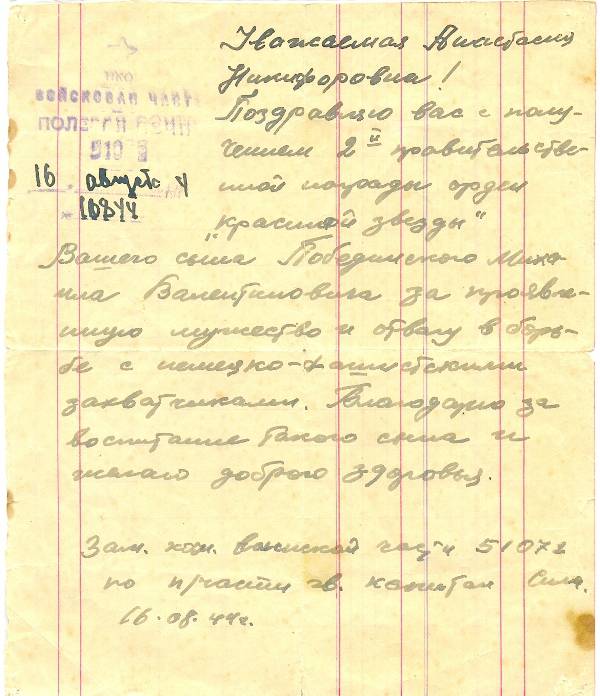 НКО
ВОЙСКОВАЯ ЧАСТЬ
ПОЛЕВАЯ
16 август 4
Уважаемая Анастасия
Никифоровна!
Поздравляю вас с полу-
чением 2й правительстве-
нной награды орден
"красной звезды"
Вашего сына Побединского Миха-
ила Валентиновича за проявле-
нную мужество и отвагу в борь-
бе с немецко-фашистскими
захватчиками. Благодарю за
воспитание такого сына и
желаю доброго здоровья.
Зам. ком. воинской части 51072
по п/части гв. капитан
16.08.44г.